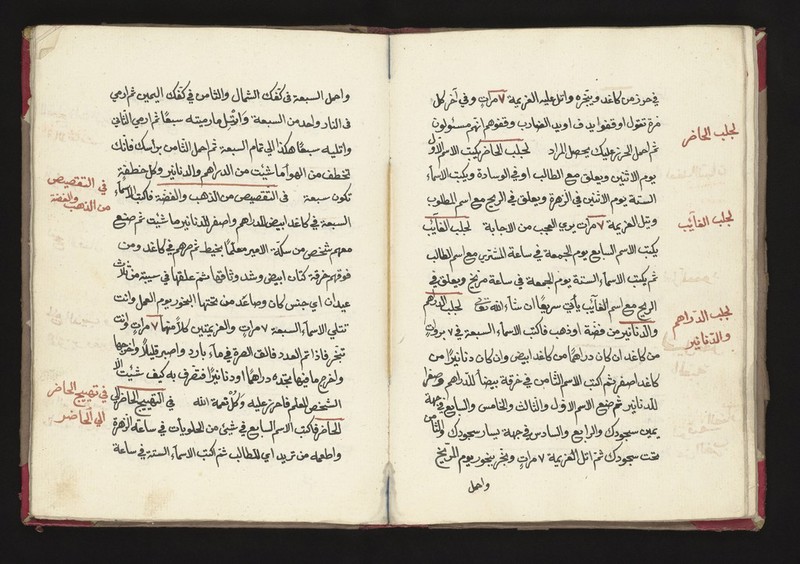 في حرز من كاغد وبخره واتل عليه العزيمة ٧ مرات وفي آخر كل
مرة تقول اوقفوا يد ف اويد الضارب وقفوهم انهم مسئولون
ثم احمل الحرز عليك يحصل المراد لجلب الحاضر يكتب الاسم الاول
يوم الاثنين ويعلق مع الطالب اوفي الوسادة ويكتب الاسماء
الستة يوم الاثنين في الزهرة ويعلق في الريح مع اسم المطلوب
وتتل العزيمة ٧ مرات يرى العجب من الاجابة لجلب الغائب
يكتب الاسم السابع يوم الجمعة في ساعة المشتري مع اسم الطالب
ثم يكتب الاسماء الستة يوم الجمعة في ساعة مريخ ويعلق في
الريح مع اسم الغائب يأتي سريعا ان شاء الله لجلب الدراهم
والدنانير من فضة اوذهب فاكتب الاسماء السبعة في ٧
من كاغد ان كان دراهما من كاغد ابيض وان كان دنانيرا من
كاغد اصفر ثم اكتب الاسم الثامن في خرقة بيضا للدراهم وصفر
للدنانير ثم ضع الاسم الاول والثالث والخامس والسابع في جهة
يمين سجودك والرابع والسادس في جهة يسار سجودك والثامن
تحت سجودك ثم اتل العزيمة ٧ مرات وبخر ببخور يوم المريخ
واحمل
لجلب الحاضر
لجلب الغائب
لجلب الدراهم
والدنانير
واحمل السبعة في كفك الشمال والثامن في كفك اليمين ثم ارمي
في النار واحد من السبعة واتل ما رميته سبعا ثم ارمي الثاني
واتليه سبعا هكذا الى تمام السبعة ثم احمل الثامن براسك فانك
تخطف من الهوا ما شيت من الدراهم والدنانير وكل خطفة
تكون سبعة في التقصيص من الذهب والفضة فاكتب الاسماء
السبعة في كاغد ابيض للدراهم واصفر للدنانير ما شيت ثم ضع
معهم شخص من سكة الامير معلما بخيط ثم صرهم في كاغد ومن
فوقهم خرقة كتان ابيض وشد وثاقها ثم علقها في سيبة من ثلاث
عيدان اي جنس كان وصاعد من تحتها البخور يوم العمل وانت
تتلي الاسماء السبعة ٧ مرات والعزيمتين كلا منها ٧ مرات وانت
تبخر فاذا تم العدد فالق الصرة في ماء بارد واصبر قليلا واخرجها
واخرج ما فيها تجده دراهما اودنانيرا فتصرف به كيف شيت الا
الشخص المعلم فاحرز عليه وكل نعمة الله في التهييج الحاضر الى
للحاضر فاكتب الاسم السابع في شيئ من الحلويات في ساعة الزهرة
واطعمه من تريد اي للطالب ثم اكتب الاسماء الستة في ساعة
في التقصيص
من الذهب والفضة
في تهييج الحاضر
الى الحاضر